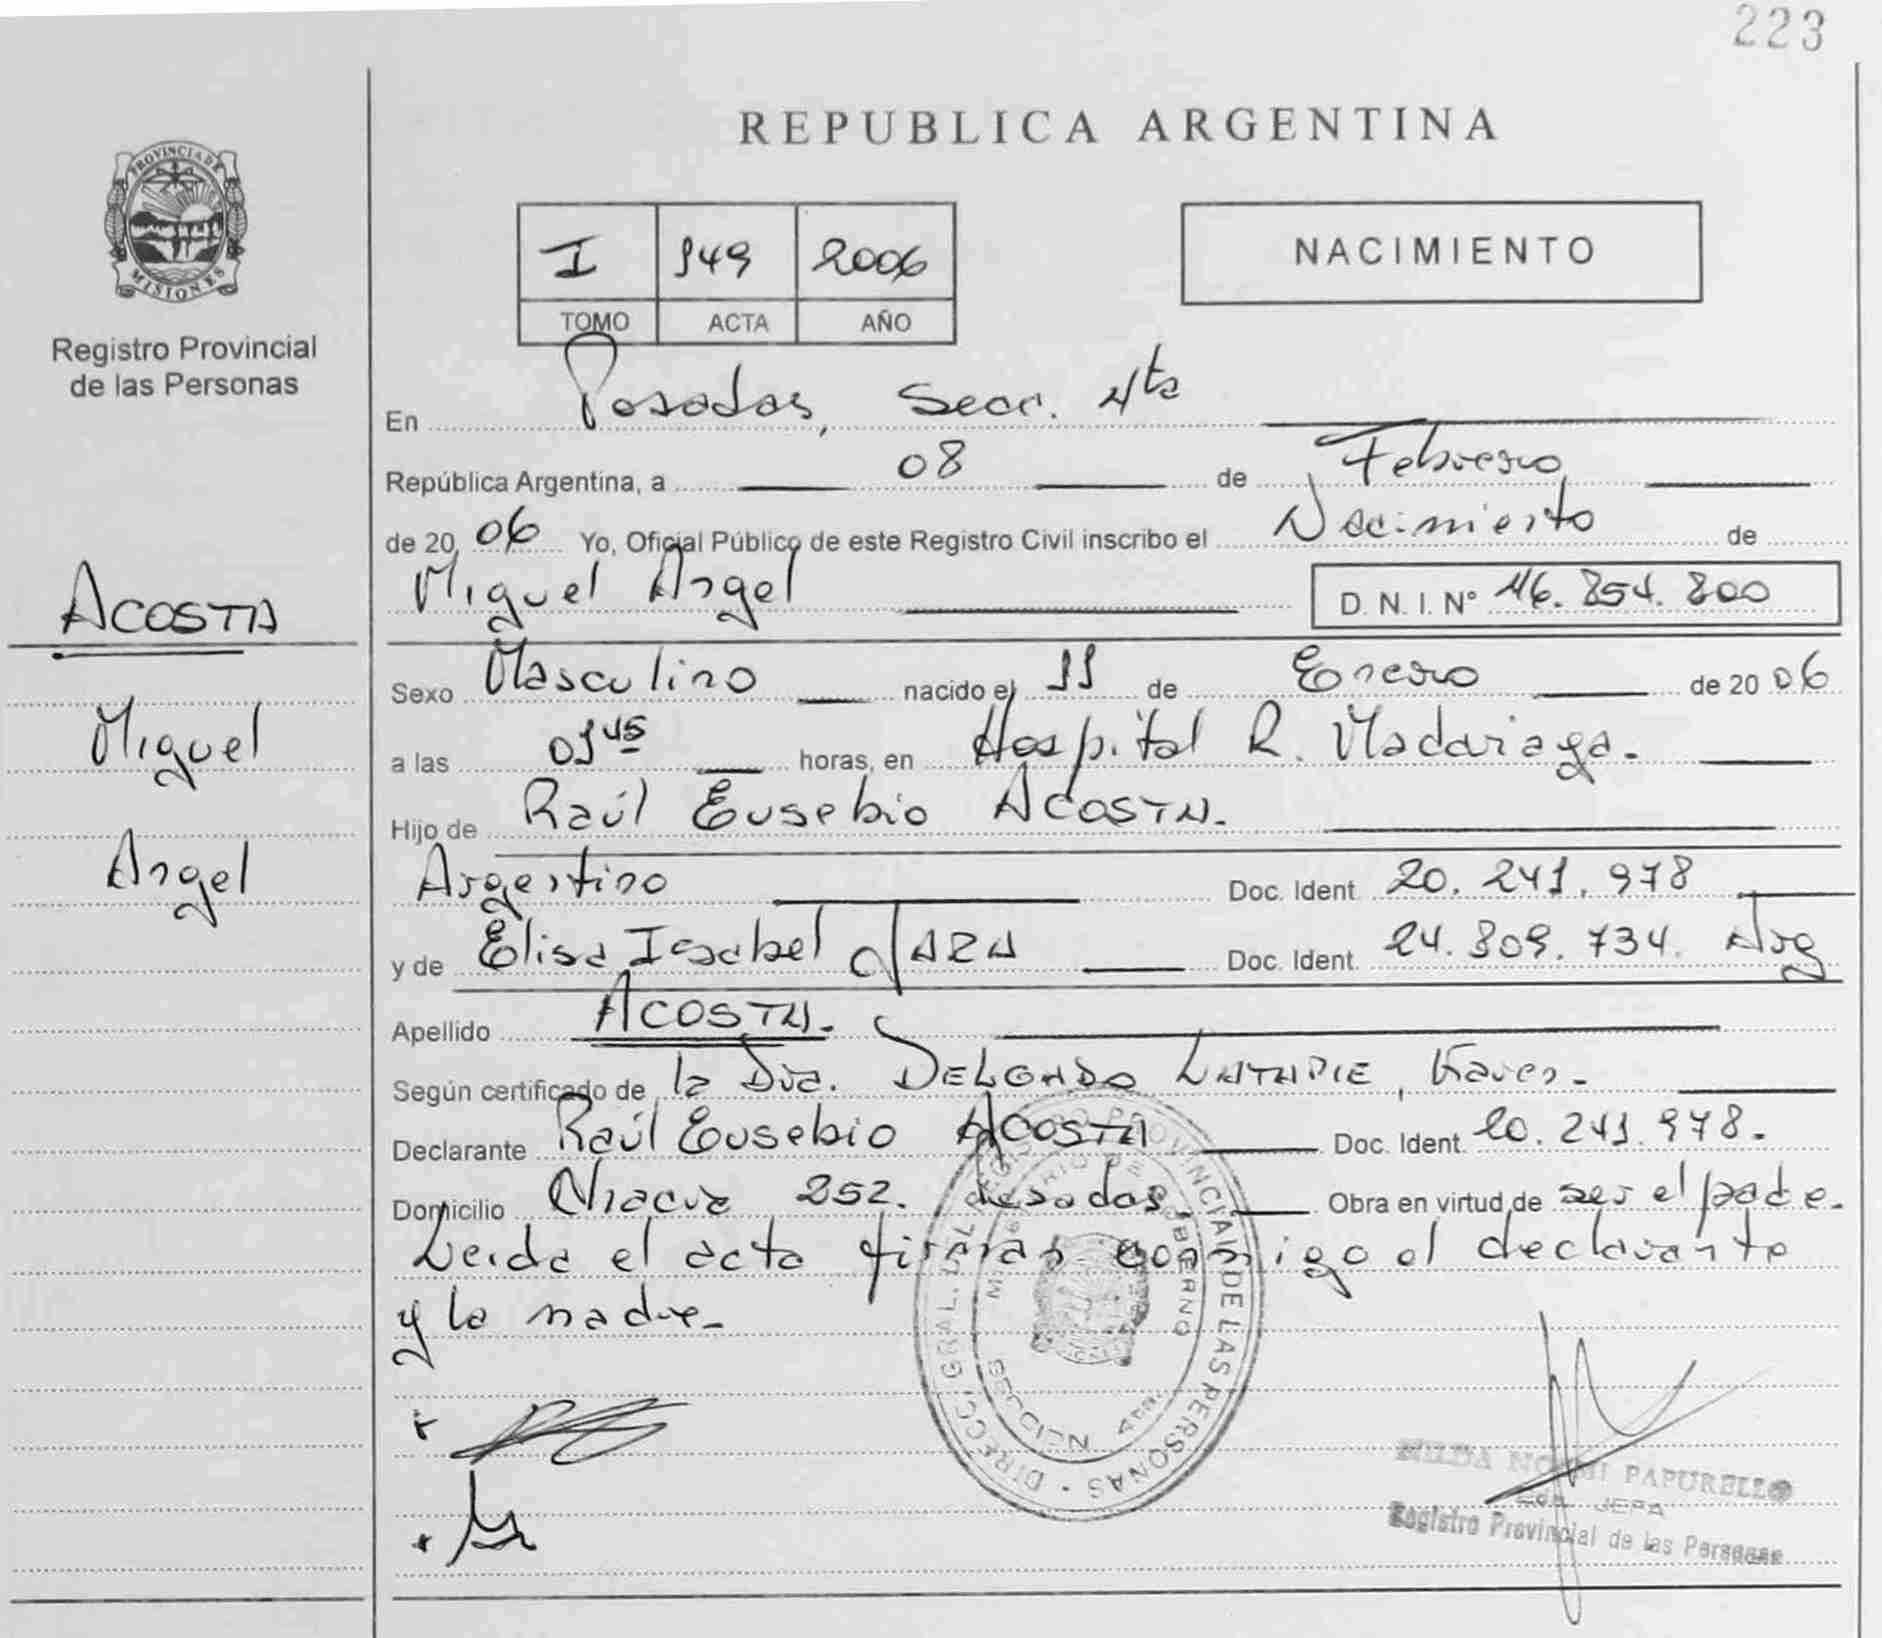 223
REPUBLICA ARGENTINA
PROVINCIA DE MISIONES
Registro Provincial
de las Personas
I 149 2006
TOMO ACTA AÑO
NACIMIENTO
En Posadas, Secc. 4ta
República Argentina, a 08 de Febrero
de 20 06 Yo, Oficial Público de este Registro Civil inscribo el Nacimiento de
Miguel Angel D.N.I. N° 46.854.800
ACOSTA
Miguel
Angel
Sexo Masculino nacido el 11 de Enero de 20 06
a las 01 45 horas, en Hospital R. Madariaga.
Hijo de Raúl Eusebio ACOSTA.
Argentino Doc. Ident. 20.241.978
y de Elisa Isabel JARA Doc. Ident. 24.809.734. Arg
Apellido ACOSTA.
Según certificado de la Dra. DELGADO LATAPIE, Karen.
Declarante Raúl Eusebio ACOSTA Doc. Ident. 20.241.978.
Domicilio 252. Posadas, Obra en virtud de ser el padre.
Leida el acta firman conmigo el declarante
y la madre.
DIRECC. GRAL. DEL REGISTRO PROVINCIAL DE LAS PERSONAS
MINISTERIO DE GOBIERNO
SECCION 4ta.
PAPURELLO
JEFA
Registro Provincial de las Personas